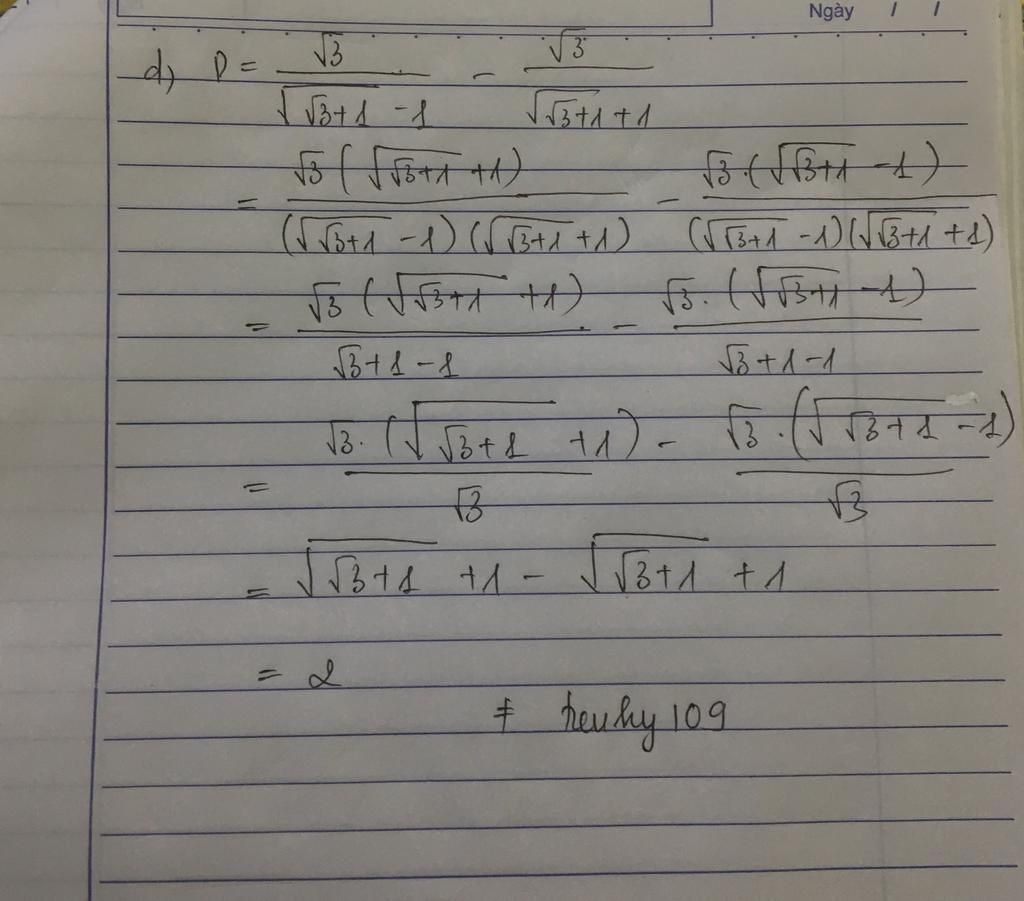 Ngày / /
d) D = √3/(√(√3+1) -1) - √3/(√(√3+1) +1)
= √3 (√(√3+1) +1)/((√(√3+1) -1) (√(√3+1) +1)) - √3.(√(√3+1) -1)/((√(√3+1) -1)(√(√3+1) +1))
= √3 (√(√3+1) +1)/(√3+1-1) - √3. (√(√3+1) -1)/(√3+1-1)
= √3. (√(√3+1) +1)/√3 - √3 .(√(√3+1) -1)/√3
= √(√3+1) +1 - √(√3+1) +1
= 2
109